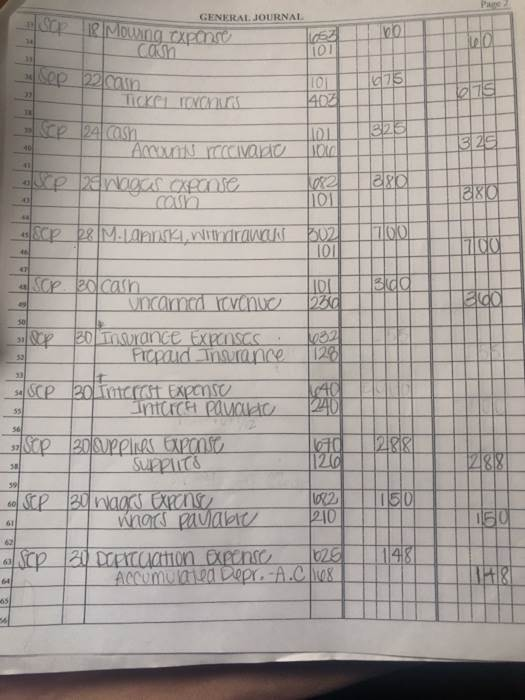 GENERAL JOURNAL Page 2
33 Sep 18 Mowing expense 653 60
34 cash 101 60
35
36 Sep 22 cash 101 675
37 Ticket revenues 403 675
38
39 Sep 24 cash 101 325
40 Accounts receivable 106 325
41
42 Sep 25 wages expense 682 380
43 cash 101 380
44
45 Sep 28 M. Lapinski, Withdrawals 302 700
46 101 700
47
48 Sep 30 cash 101 360
49 unearned revenue 236 360
50
51 Sep 30 Insurance Expenses 632
52 Prepaid Insurance 128
53
54 Sep 30 Interest Expense 640
55 Interest payable 240
56
57 Sep 30 supplies Expense 670 288
58 supplies 126 288
59
60 Sep 30 wages Expense 682 150
61 wages payable 210 150
62
63 Sep 30 Depreciation Expense 625 148
64 Accumulated Depr.-A.C 168 148
65
66